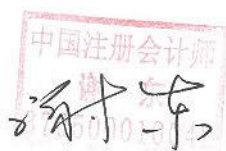 中国注册会计师
谢东
谢东